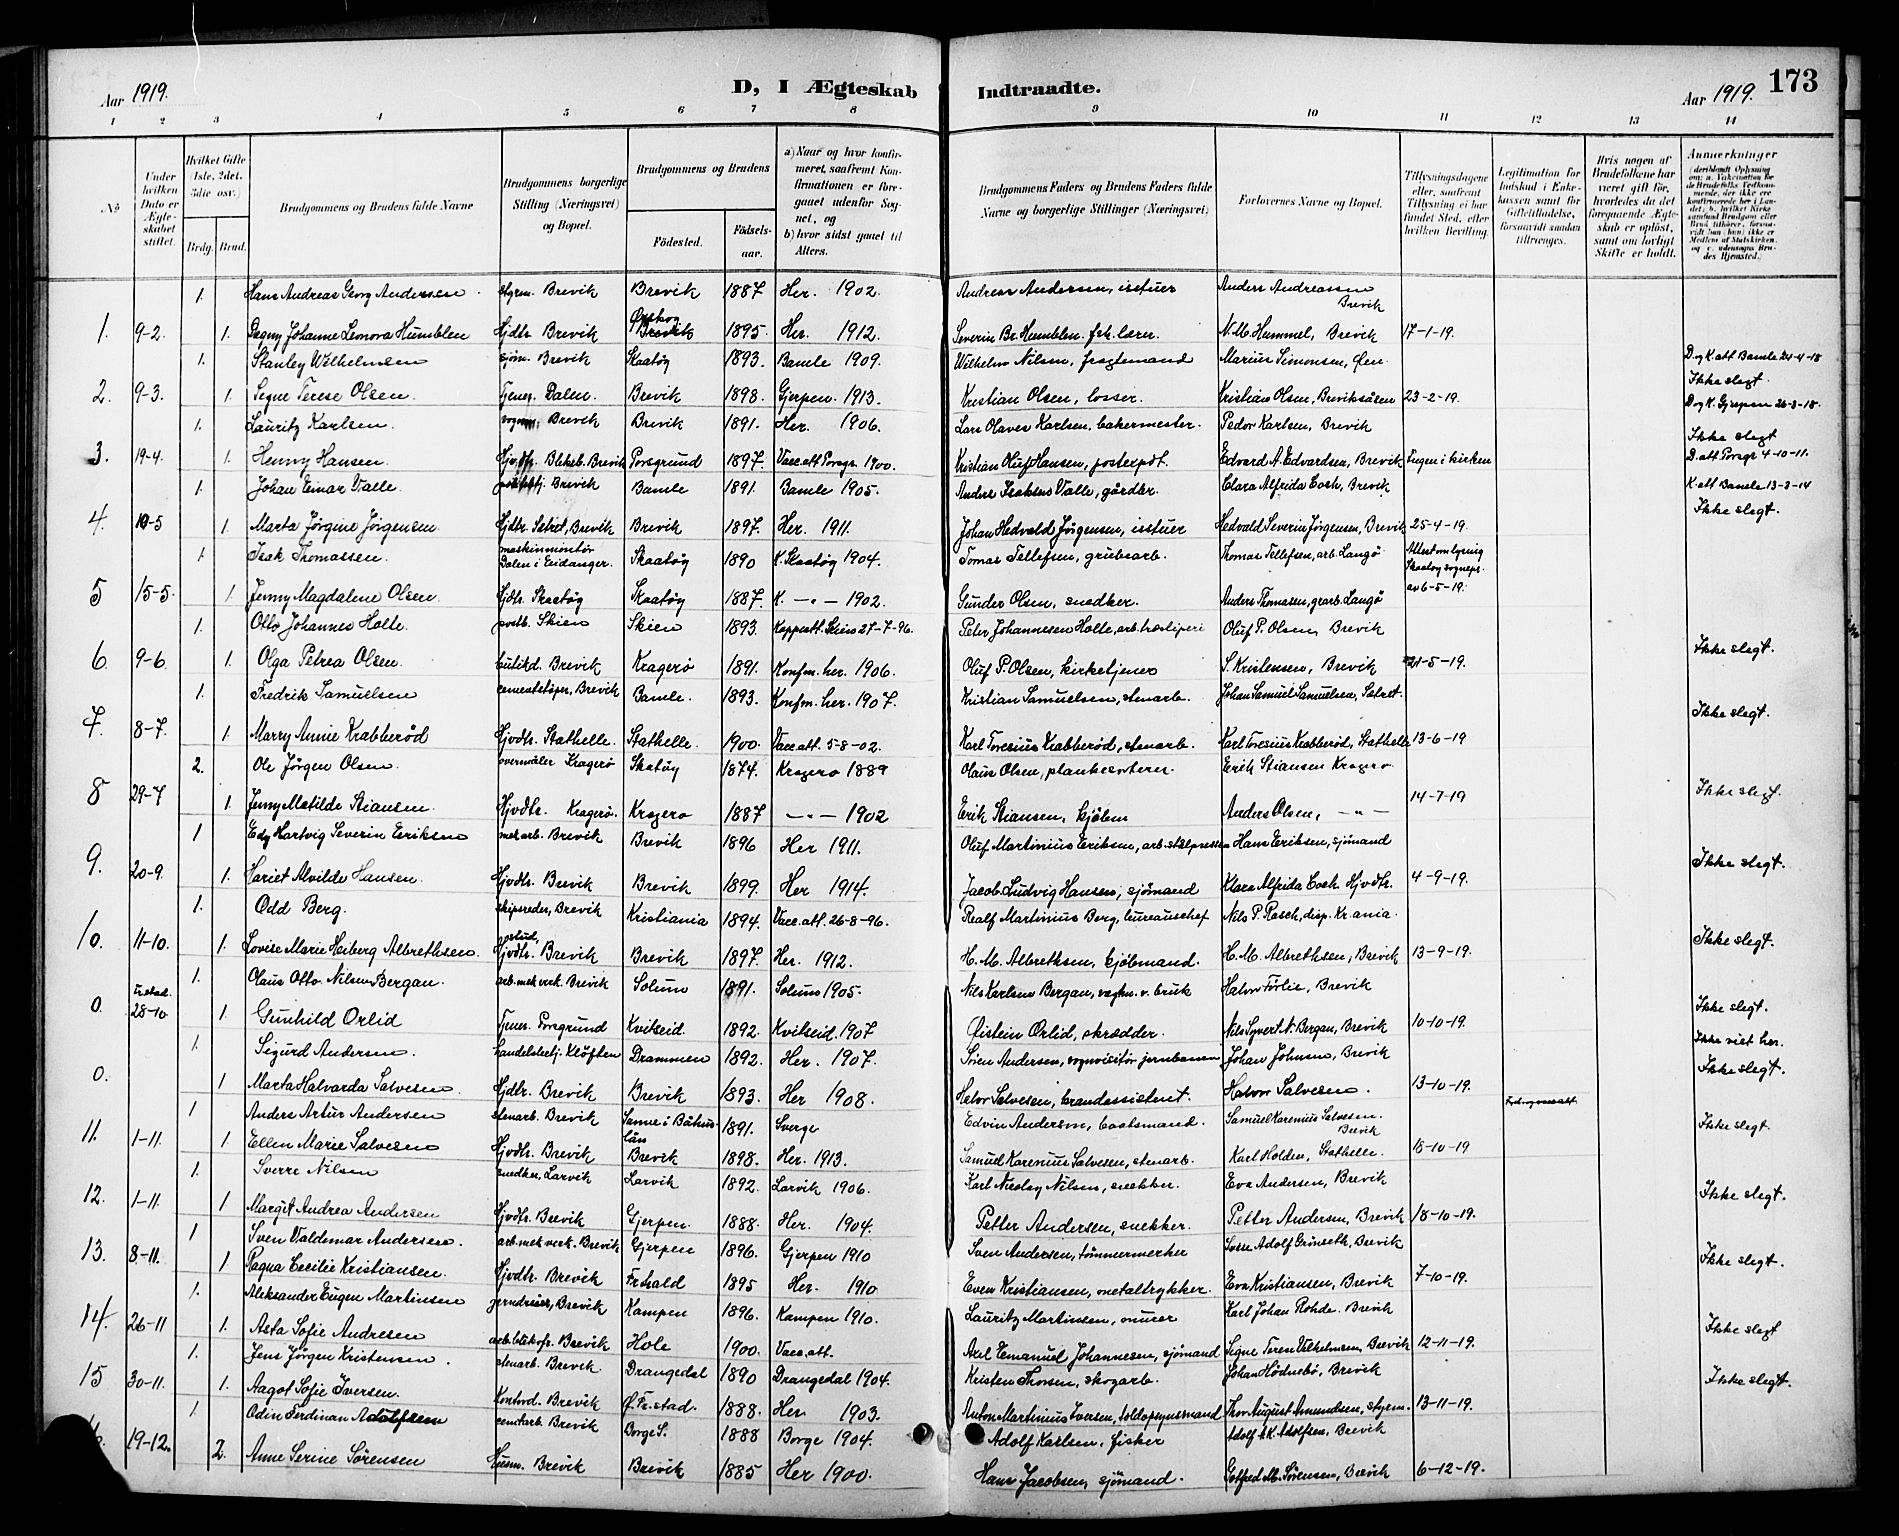 Aar 1919. D, I Ægteskab Indtraadte. Aar 1919. 173
1 2 3 4 5 6 7 8 9 10 11 12 13 14
No
Under hvilken Dato er Ægteskabet stiftet.
Hvilket Gifte 1ste, 2det, 3die osv.)
Brdg. Brud.
Brudgommens og Brudens fulde Navne
Brudgommens borgerlige Stilling (Næringsvei) og Bopæl.
Brudgommens og Brudens
Fødested.
Fødsels-aar.
a) Naar og hvor konfirmeret, saafremt Konfirmationen er foregaaet udenfor Sognet, og
b) hvor sidst gaaet til Alters.
Brudgommens Faders og Brudens Faders fulde Navne og borgerlige Stillinger (Næringsvei)
Forlovernes Navne og Bopæl.
Tillysningsdagene eller, saafremt Tillysning ei har fundet Sted, efter hvilken Bevilling.
Legitimation for Indskud i Enkekassen samt for Giftetilladelse, forsaavidt saadan tiltrænges.
Hvis nogen af Brudefolkene har været gift før, hvorledes da det foregaaende Ægteskab er opløst, samt om lovligt Skifte er holdt.
Anmerkninger
1. Hans Andreas Georg Andersen styrm. Brevik Brevik 1887 Her. 1902. Andreas Andersen, isstuer Anders Andreassen Brevik
1. 9-2. 1. Dagny Johanne Leonora Humblen Hjdtr. Brevik Brevik 1895. Her. 1912. Severin Br. Humblen, lærer. N. M. Hummel, Brevik 17-1-19.
1. Stanley Wilhelmsen sjøm. Brevik Skaatøy 1893. Bamle 1909. Wilhelm Nilsen, fragtemand Marius Simonsen, Øen D og K att Bamle 24-4-18
2. 9-3. 1. Signe Terese Olsen. Tjener. Dalen. Brevik 1898. Gjerpen. 1913. Kristian Olsen, losser. Kristian Olsen, Breviksåsen 23-2-19. Ikke slegt. D og K. Gjerpen 26-3-18.
1. Lauritz Karlsen. Brevik Brevik 1891. Her. 1906. Lars Olaves Karlsen, bakermester. Peder Karlsen, Brevik Ikke slegt
3. 19-4. 1. Henny Hansen. Hjvdtr. Blekeb. Brevik Porsgrund 1897. Vacc. att Porsgr. 1900. Kristian Oluf Hansen, postexpdt. Edvard A. Edvardsen, Brevik Ingen i kirken D. att Porsgr 4-10-11.
1. Johan Einar Valle. Brevik Bamle 1891. Bamle 1905. Anders Isaksen Valle, gårdbr. Clara Alfrida Esch, Brevik K. att Bamle 13-3-14
4. 10-5 1. Marta Jørgine Jørgensen Hjdtr. Setret, Brevik Brevik 1897. Her. 1911. Johan Hedvald Jørgensen, isstuer Hedvald Severin Jørgensen, Brevik 25-4-19. Ikke slegt.
1. Isak Thomassen. maskinmontør Dalen i Eidanger. Skaatøy 1890 K. Skaatøy 1904. Tomas Tellefsen, grubearb. Thomas Tellefsen, arb. Langø Attest om lysning Skaatøy sognepr. av 6-5-19.
5 15-5. 1 Jenny Magdalene Olsen Hjdtr. Skaatøy Skaatøy 1887. K. -„- 1902. Gunder Olsen, snedker. Anders Thomasen, grarb. Langø
1. Otto Johannes Holte. Skien Skien 1893. Koppeatt. Skien 27-7-96. Peter Johannesen Holte, arb. træsliperi Oluf P. Olsen, Brevik
6. 9-6. 1. Olga Petrea Olsen. butikd. Brevik Kragerø 1891. Konfm. her. 1906. Oluf P. Olsen, kirketjener S. Kristensen, Brevik 21-5-19. Ikke slegt.
1. Fredrik Samuelsen cementstøper, Brevik Bamle. 1893. Konfm. her. 1907. Kristian Samuelsen, stenarb. Johan Samuel Samuelsen, Setret.
7. 8-7. 1. Marry Annie Krabberød Hjvdtr. Stathelle. Stathelle. 1900. Vacc. att. 5-8-02. Karl Toresius Krabberød, stenarb. Karl Toresius Krabberød, Stathelle 13-6-19 Ikke slegt.
2. Ole Jørgen Olsen. overmåler Kragerø Skatøy 1874. Kragerø 1889 Olaus Olsen, plankesorterer Erik Stiansen Kragerø
8 29-7 1. Jenny Matilde Stiansen. Hjvdtr. Kragerø. Kragerø 1887 -„- 1902 Erik Stiansen, Anders Olsen, -„- 14-7-19 Ikke slegt.
1 Edy Hartvig Severin Eriksen mek arb. Brevik Brevik 1896 Her 1911. Oluf Martinius Eriksen, arb. Hans Eriksen, sjømand
9. 20-9. 1. Hariet Alvilde Hansen. Hjvdtr. Brevik Brevik 1899. Her 1914. Jacob Ludvig Hansen, sjømand Klara Alfrida Esch. Hjvdtr. 4-9-19. Ikke slegt.
1. Odd Berg. skipsreder, Brevik Kristiania 1894. Vacc. att. 26-8-96. Realf Martinius Berg, bureauchef Nils P. Rasch, disp. Kr.ania.
10. 11-10. 1. Lovise Marie Heiberg Albrethsen. Hjvdtr. Brevik Brevik 1897. Her. 1912. H. M. Albrethsen, kjøbmand. H. M. Albrethsen, Brevik 13-9-19. Ikke slegt.
1. Olaus Otto Nilsen Bergan. arb. mek verk. Brevik Solum 1891. Solum 1905. Nils Karlsen Bergan, vagtm. v. bruk Halvor Førlie, Brevik
0. Fr.stad. 28-10. 1. Gunhild Orlid Tjener. Porsgrund Kviteseid. 1892. Kvitseid. 1907 Øistein Orlid, skrædder. Nils Syvert N. Bergan, Brevik 10-10-19. Ikke slegt.
1. Sigurd Andersen. handelsbetj. Kløften Drammen 1892. Her. 1907. Søren Andersen, vognvisitør jernbanen Johan Johnsen, Brevik Ikke viet her.
0. 1 Marta Halvarda Salvesen Hjdtr. Brevik Brevik 1893. Her 1908. Halvor Salvesen, brandassistent. Halvor Salvesen. 13-10-19. Ikke slegt.
1 Anders Artur Andersen stenarb. Brevik Sanne i Båhuslän 1891. Sverge Edvin Andersen, baatsmand. Samuel Karenius Salvesen. Brevik
11. 1-11. 1. Ellen Marie Salvesen Hjvdtr. Brevik Brevik 1898. Her. 1913. Samuel Karenius Salvesen, stenarb. Karl Holden, Stathelle. 18-10-19 Ikke slegt
1. Sverre Nilsen snedker, Larvik Larvik 1892. Larvik 1906. Karl Nicolay Nilsen, snekker. Eva Andersen, Brevik
12. 1-11. 1 Margit Andrea Andersen Hjvdtr. Brevik Gjerpen. 1888. Her. 1904. Petter Andersen, snekker. Petter Andersen, Brevik 18-10-19. Ikke slegt.
1 Sven Valdemar Andersen. arb. mek verk. Brevik Gjerpen 1896. Gjerpen 1910 Sven Andersen, tømmermerker Adolf Grønseth, Brevik
13. 8-11. 1 Ragna Cecilie Kristiansen. Hjvdtr. Brevik Fr.hald 1895 Her. 1910 Even Kristiansen, metaltrykker. Eva Kristiansen, Brevik 7-10-19. Ikke slegt.
1. Aleksander Eugen Martinsen jerndreier, Brevik Kampen 1896. Kampen 1910. Lauritz Martinsen, murer Karl Johan Rohde. Brevik
14. 26-11 1. Asta Sofie Andresen Brevik Hole 1900. Vacc. att. Axel Emanuel Johannesen, sjømand Signe Teres Vilhelmsen, Brevik 12-11-19. Ikke slegt
1. Jens Jørgen Kristensen. stenarb. Brevik. Drangedal 1890 Drangedal 1904. Kristen Thorsen, skogarb. Johan Hødnebø, Brevik
15 30-11. 1. Aagot Sofie Iversen. Kontord. Brevik Ø. Fr.stad. 1888. Her 1903. Anton Martinius Iversen, toldopsynsmand Thor August Amundsen, styrm. 13-11-19. Ikke slegt.
1 Odin Ferdinan Adolfsen cemtarb. Brevik Borge S. 1888 Borge 1904. Adolf Karlsen, fisker Adolf A. K. Adolfsen, Brevik
19-12. 2. Anne Serine Sørensen Husm. Brevik Brevik 1885 Her 1900. Hans Jacobsen, sjømand. Gotfred M. Sørensen, Brevik 6-12-19.